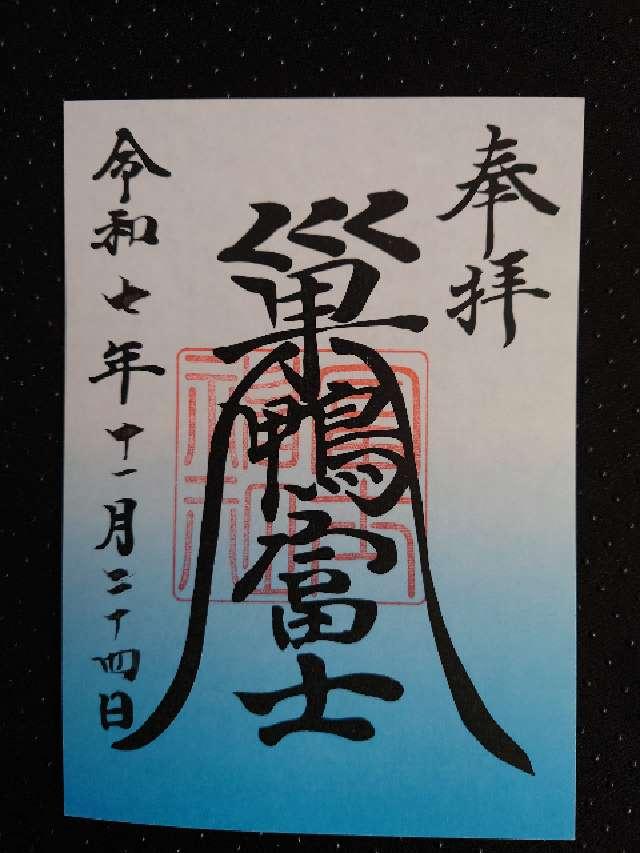 奉拝
巣鴨富士
令和七年十一月二十四日